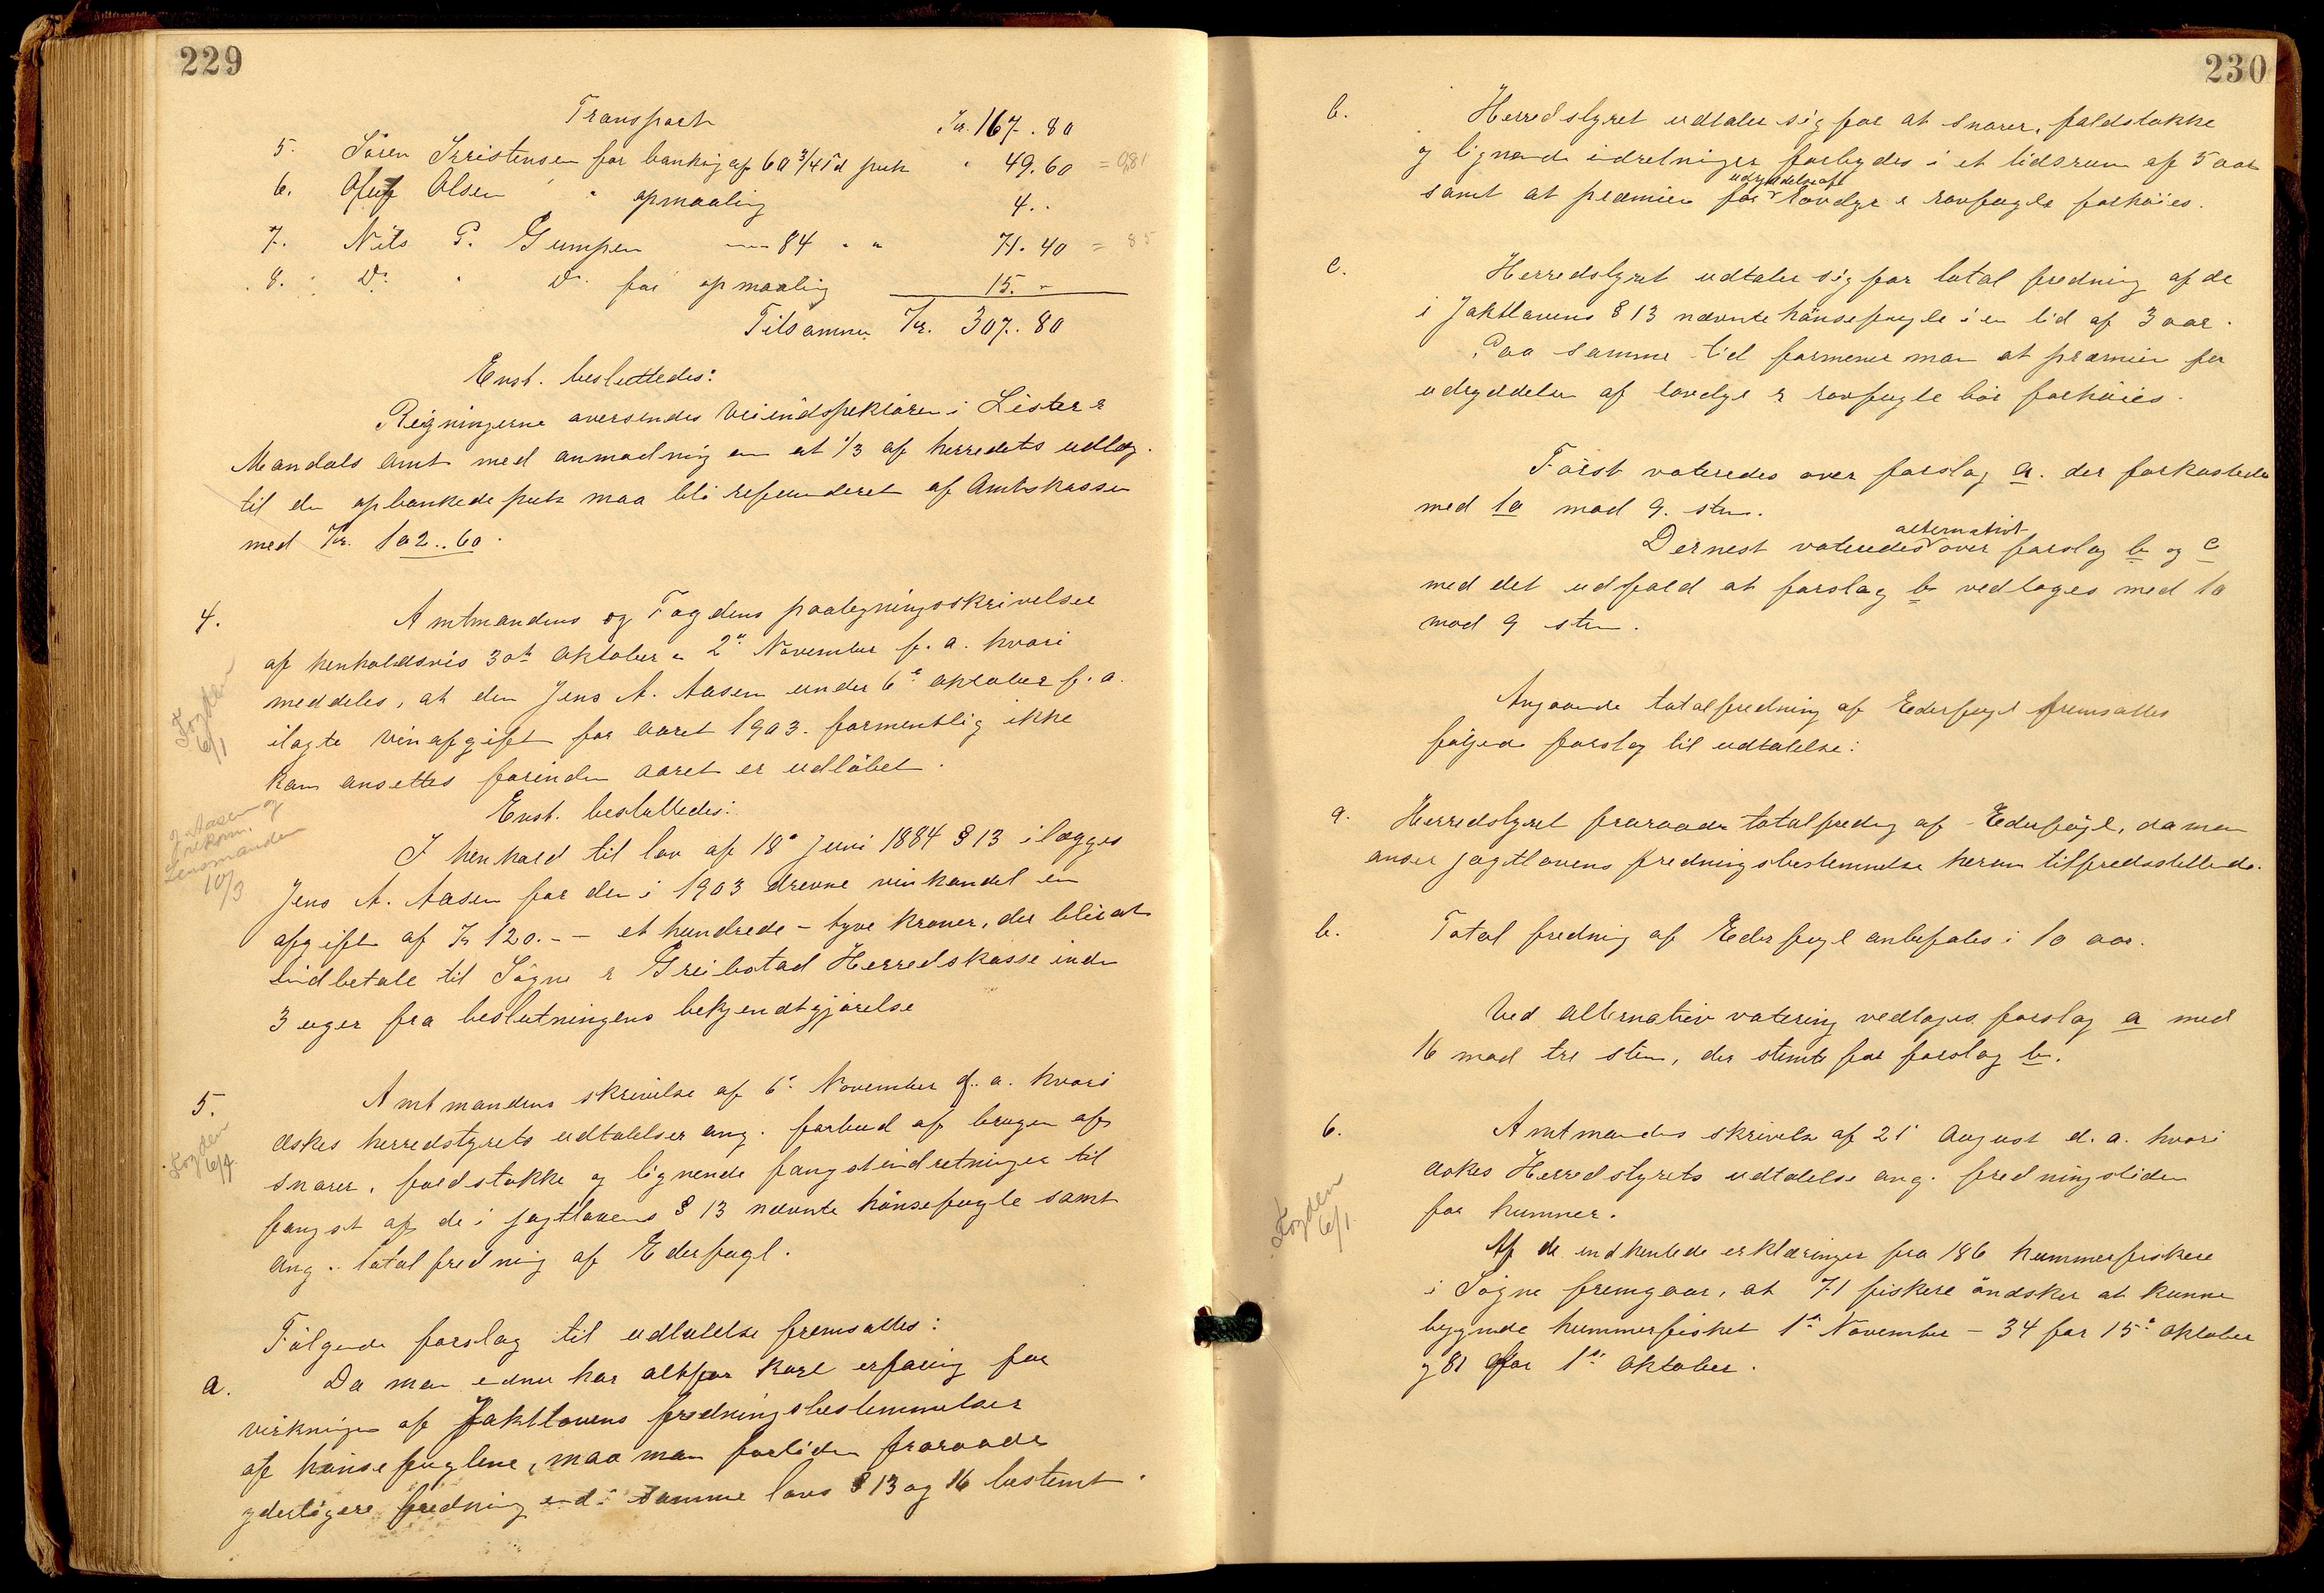 229
Transport Kr. 167.80
5. Sören Kristensen for banking af 60 3/4 puk " 49.60 = 0,81
6. Oluf Olsen " opmaaling 4..
7. Nils P. Gumpen — 84 " " 71.40 = 85
8. Do. " Do. for opmaaling 15.-
Tilsammen Kr. 307.80
Enst. besluttedes:
Regningerne oversendes Veiindspektören i Lister &
Mandals Amt med anmodning om at 1/3 af herredets udlæg
til den opbankede puk maa bli refunderet af Amtskassen
med Kr. 102..60.
4. Amtmandens og Fogdens paategningsskrivelser
af henholdsvis 30te Oktober & 2n November f. a. hvori
meddeles, at den Jens A. Aasen under 6te oktober f. a.
Fogden
6/1
ilagte vinafgift for aaret 1903. formentlig ikke
kan ansettes forinden aaret er udlöbet.
Enst. besluttedes:
J. Aasen og
Lensmanden
10/3
I henhold til lov af 18de Juni 1884 § 13 ilægges
Jens A. Aasen for den i 1903 drevne vinhandel en
afgift af Kr 120.-- et hundrede - tyve kroner, der blir at
indbetale til Sögne & Greibstad Herredskasse inden
3 uger fra beslutningens bekjendtgjörelse
5. Amtmandens skrivelse af 6te November d. a. hvori
Fogden
æskes herredstyrets udtalelser ang. forbud af brugen af
snarer, faldstokke og lignende fangstindretninger til
fangst af de i jagtlovens § 13 nævnte hönsefugle samt
ang. total fredning af Ederfugl.
Fölgende forslag til udtalelse fremsattes:
a. Da man endnu har altfor kort erfaring for
virkningen af Jaktlovens fredningsbestemmelser
af hönsefuglene, maa man fortiden fraraade
yderligere fredning end i samme lovs § 13 og 16 bestemt.
230
b. Herredstyret udtaler sig for at snarer, faldstokke
og lignende indretninger forbydes i et tidsrum af 5 aar
samt at præmien for udryddelse af Rovdyr & rovfugle forhöies.
c. Herredstyret udtaler sig for total fredning af de
i Jaktlovens § 13 nævnte hönsefugle i en tid af 3 aar.
Paa samme tid formener man at præmien for
udryddelse af rovdyr & rovfugle bör forhöies.
Först voteredes over forslag a. der forkastedes
med 10 mod 9. stm.
Dernest voteredes alternativt over forslag b og c
med det udfald at forslag b vedtoges med 10
mod 9 stm.
Angaaende totalfredning af Ederfugl fremsattes
fölgende forslag til udtalelse:
a. Herredstyret fraraader totalfredng af Ederfugl, da man
anser jagtlovens fredningsbestemmelse herom tilfredsstillende.
b. Total fredning af Ederfugl anbefales i 10 aar.
Ved alternativ votering vedtoges forslag a med
16 mod tre stm, der stemte for forslag b.
6. Amtmandens skrivelse af 21' August d. a. hvori
æskes Herredstyrets udtalelse ang. fredningstiden
Fogden
6/1.
for hummer.
Af de indhentede erklæringer fra 186 hummerfiskere
i Sögne fremgaar, at 71 fiskere öndsker at kunne
begynde hummerfisket 1ste November - 34 for 15de oktober
og 81 for 1ste Oktober.